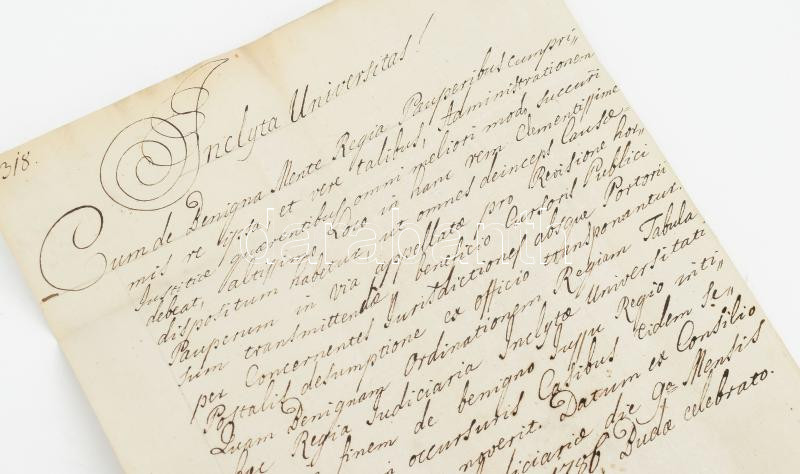 318.
Inclyta Universitas!
Cum de Benigna Mente Regia Pauperibus cumpri„
mis re ipsa, et vere talibus, Administrationem
Justitiæ quærentibus omni meliori modo succurri
debeat, Altissimo Loco in hanc rem Clementissime
dispositum habetur, ut omnes deinceps Causæ
Pauperum in via appellatæ pro Revisione hor„
sum transmittendæ beneficio Cursoris Publici
per Concernentes Jurisdictiones absque Portorii
Postalis desumptione ex officio transponantur.
Quam Benignam Ordinationem Regiam Tabula
hac Regia Judiciaria Inclytæ Universitati
finem de benigno Jussu Regio inti„
occursuris Casibus eidem se„
noverit. Datum ex Consilio
die 9a Mensis
1786. Budæ celebrato.
darabanth